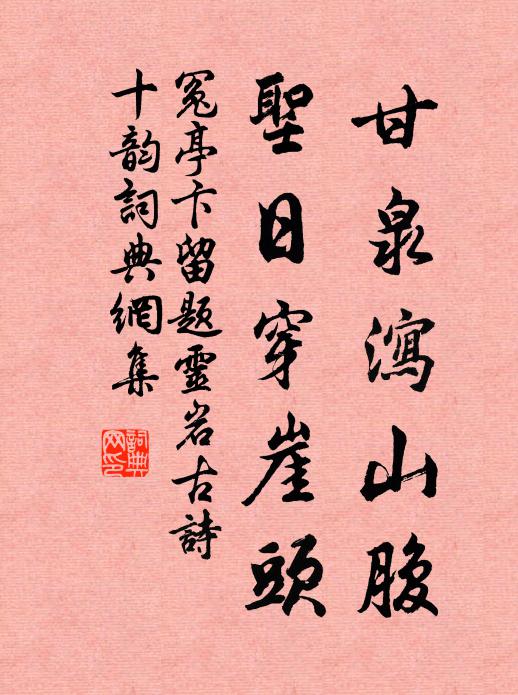 甘泉瀉山腹
聖日穿崖頭
冤亭卞留題靈岩古詩
十韵詞典網集
詞典
网印